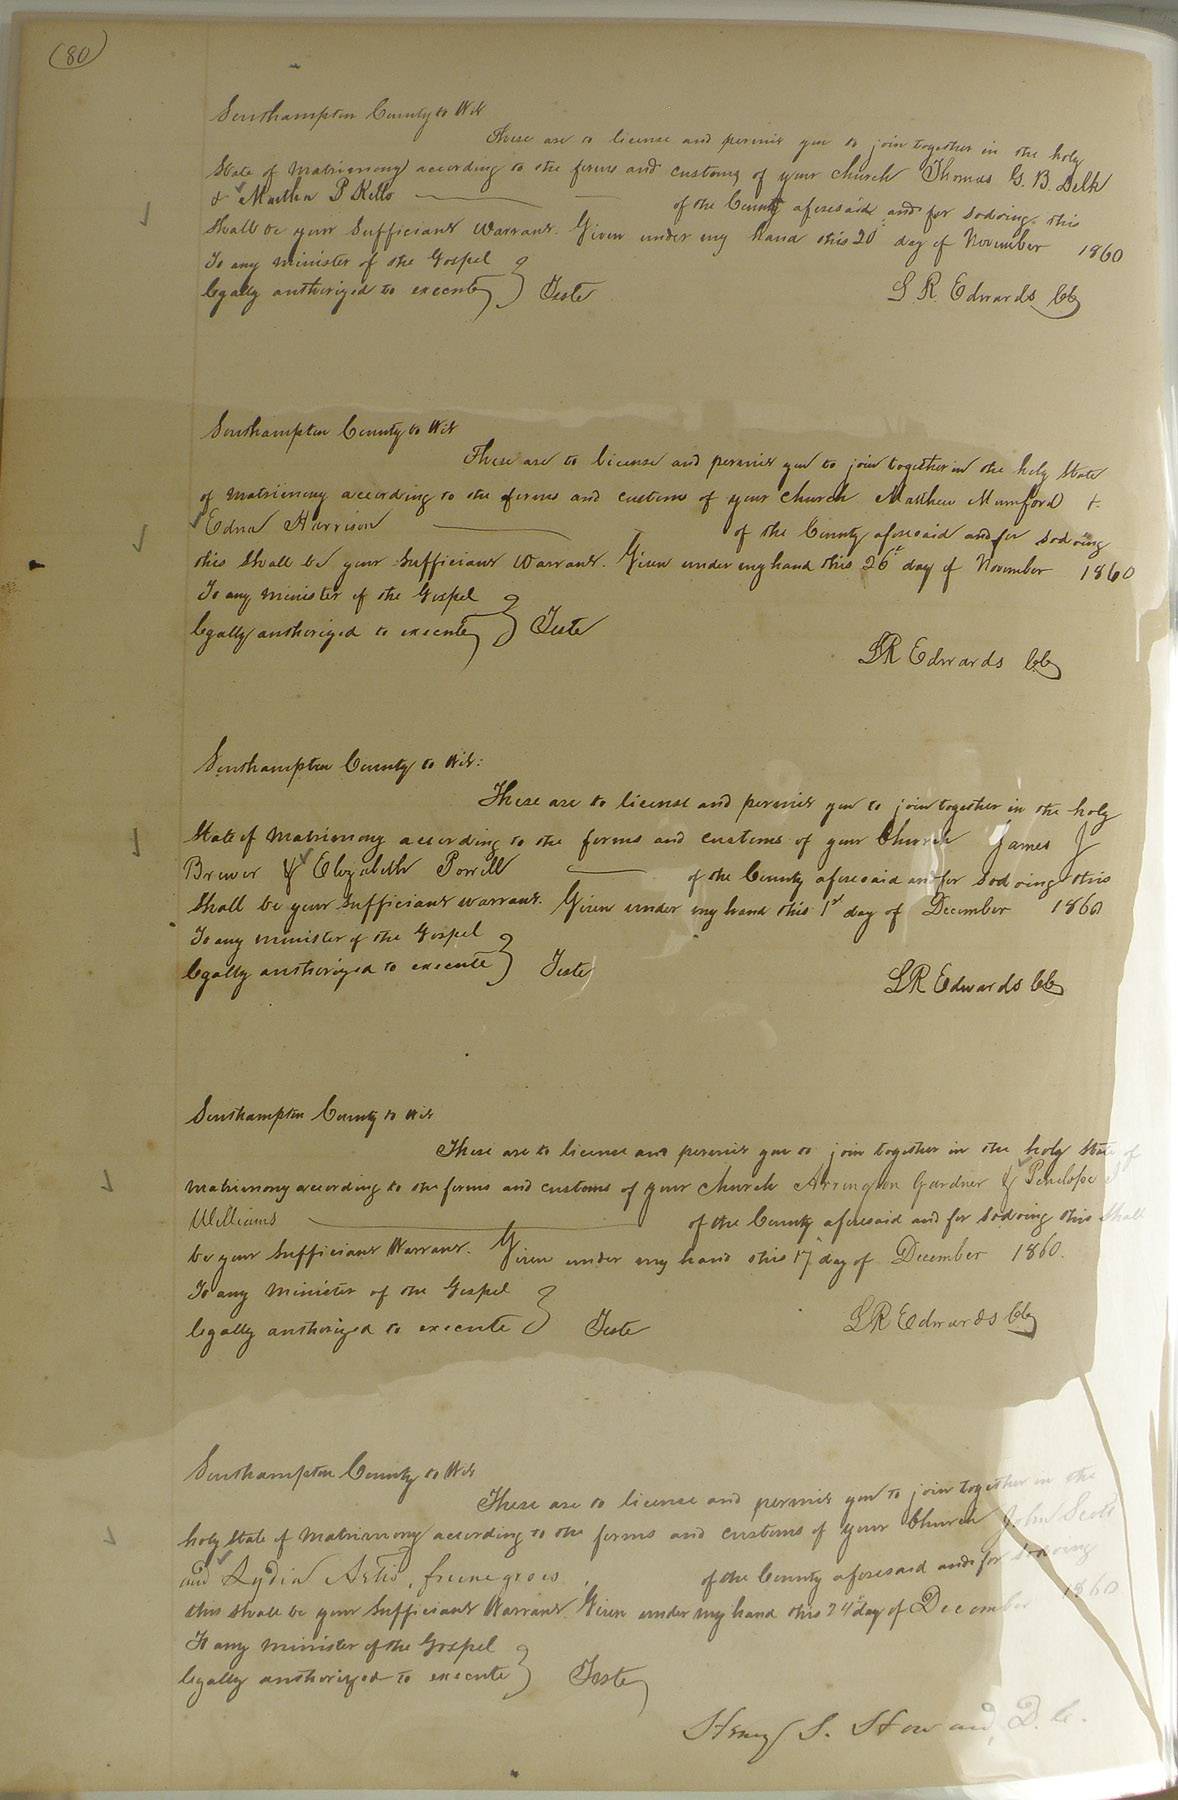 (80)
Southampton County to Wit
These are to license and permit you to join together in the holy
State of Matrimony according to the forms and customs of your Church Thomas G. B. Delk
& Martha P Kello of the County aforesaid and for sodoing this
Shall be your Sufficient Warrant. Given under my hand this 20 day of November 1860
To any minister of the Gospel
legally authorized to execute } Teste S R Edwards CC
Southampton County to Wit
These are to license and permit you to join together in the holy State
of matrimony according to the forms and customs of your Church Matthew Mumford &
Edna Harrison of the County aforesaid and for sodoing
this Shall be your Sufficient Warrant. Given under my hand this 26 day of November 1860
To any minister of the Gospel
legally authorized to execute } Teste
LR Edwards CC
Southampton County to Wit:
These are to license and permit you to join together in the holy
State of Matrimony according to the forms and customs of your Church James J
Brewer & Elizabeth Powell of the County aforesaid and for sodoing this
Shall be your Sufficient warrant. Given under my hand this 1st day of December 1860
To any minister of the Gospel
legally authorized to execute } Teste LR Edwards CC
Southampton County to Wit
These are to license and permit you to join together in the holy State of
Matrimony according to the forms and customs of your Church Arrington Gardner & Penelope
Williams of the County aforesaid and for sodoing this Shall
be your Sufficient Warrant. Given under my hand this 17 day of December 1860.
To any Minister of the Gospel
legally authorized to execute } Teste LR Edwards CC
Southampton County to Wit
These are to license and permit you to join together in the
holy State of Matrimony according to the forms and customs of your Church John Scott
and Lydia Artis, freenegroes, of the County aforesaid and for sodoing
this Shall be your Sufficient Warrant Given under my hand this 24 day of December 1860
To any minister of the Gospel
legally authorized to execute } Teste
Henry S. D. C.